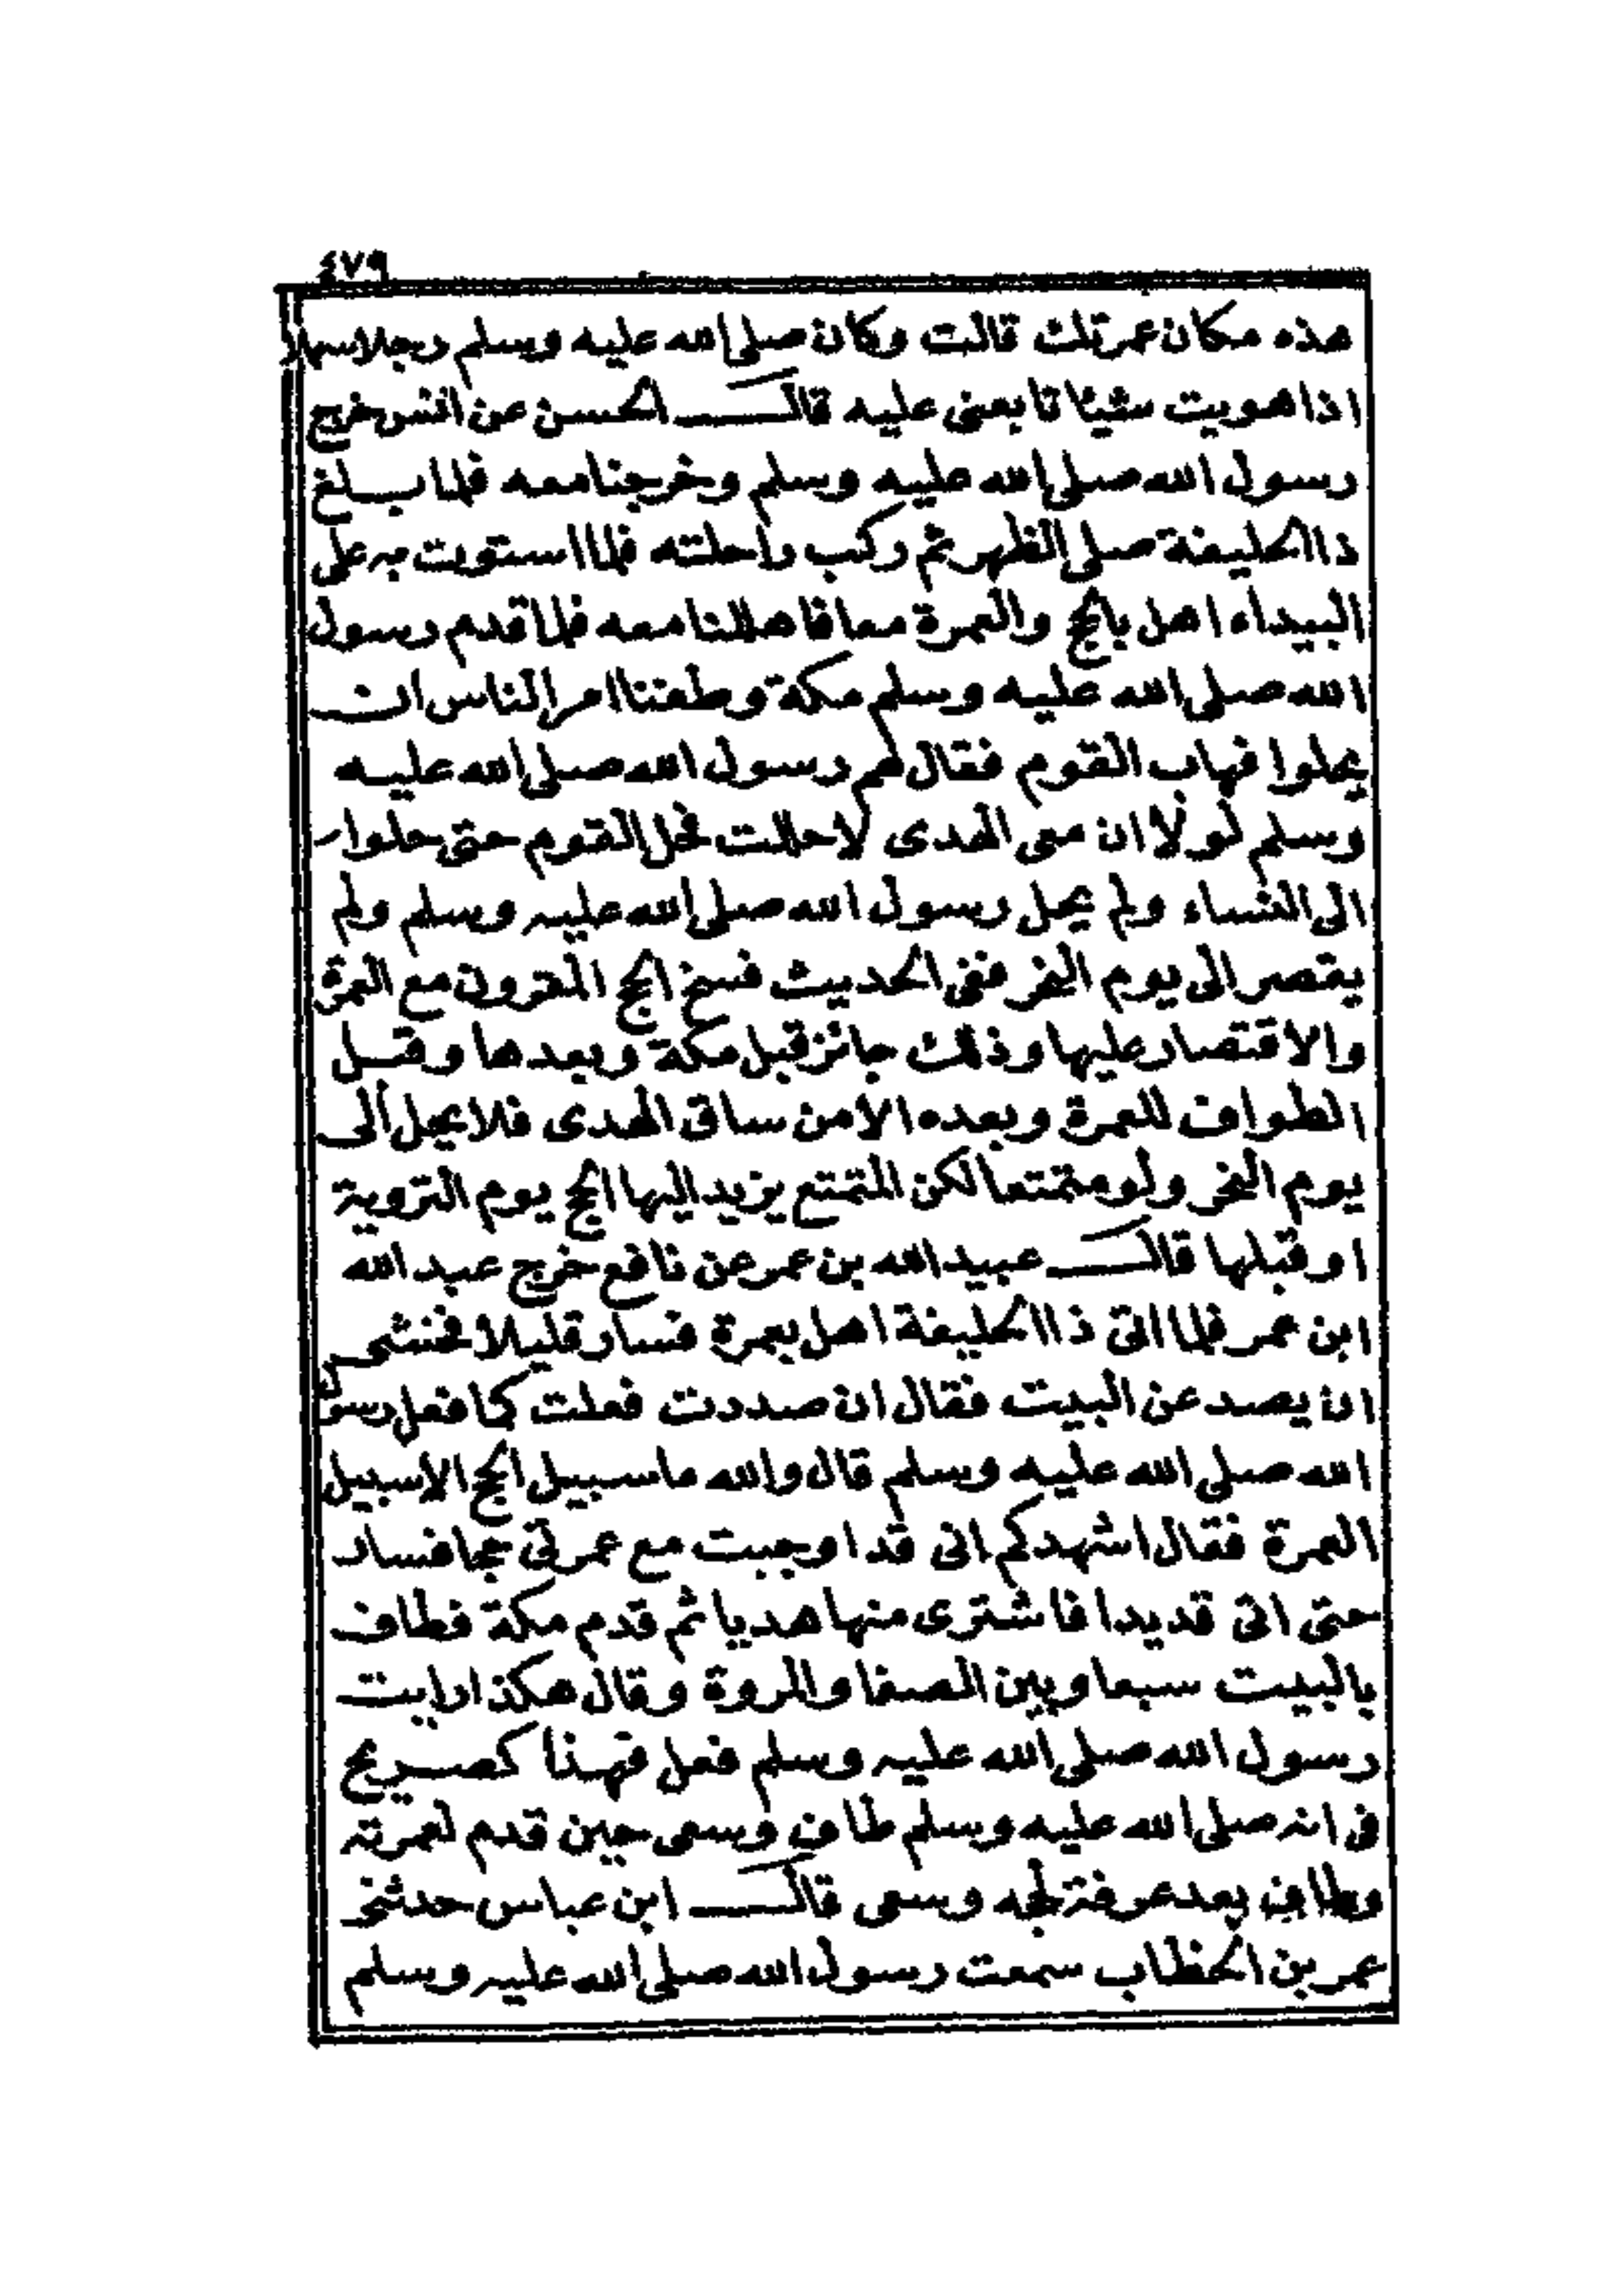 ٤٧٩
هذه مكان عمرتك قالت وكان صلى الله عليه وسلم رجلا سهلا
اذا هويت شيئا تابعنى عليه قال الحسن عن انس خرج
رسول الله صلى الله عليه وسلم وخرجنا معه فلما بلغ
ذا الحليفة صلى الظهر ثم ركب راحلته فلما استوت به على
البيداء اهل بالحج والعمرة معا فاهللنا معه فلما قدم رسول
الله صلى الله عليه وسلم مكة وطفنا امر الناس ان
يحلوا فهاب القوم فقال لهم رسول الله صلى الله عليه
وسلم لولا ان معى الهدى لاحللت فحل القوم حتى حلوا
الى النساء ولم يحل رسول الله صلى الله عليه وسلم ولم
يقصر الى يوم النحر ففى الحديث فسخ الحج المقرون مع العمرة
والاقتصار عليها وذلك جائز قبل مكة وبعدها وقبل
الطواف للعمرة وبعده الا من ساق الهدى فلا يحل الى
يوم النحر ولو متمتعا لكن المتمتع يزيد اليها الحج يوم التروية
او قبلها قال عبيد الله بن عمر عن نافع خرج عبد الله
ابن عمر فلما اتى ذا الحليفة اهل بعمرة فسار قليلا فخشى
ان يصد عن البيت فقال ان صددت فعلت كما فعل رسول
الله صلى الله عليه وسلم قال والله ما سبيل الحج الا سبيل
العمرة فقال اشهدكم انى قد اوجبت مع عمرتى حجا فسار
حتى اتى قديدا فاشترى منها هديا ثم قدم مكة فطاف
بالبيت سبعا وبين الصفا والمروة وقال هكذا رايت
رسول الله صلى الله عليه وسلم فعل فهذا كصريح
فى انه صلى الله عليه وسلم طاف وسعى حين قدم لعمرته
وطاف بعد عرفة لحجه وسعى قال ابن عباس حدثنى
عمر بن الخطاب سمعت رسول الله صلى الله عليه وسلم